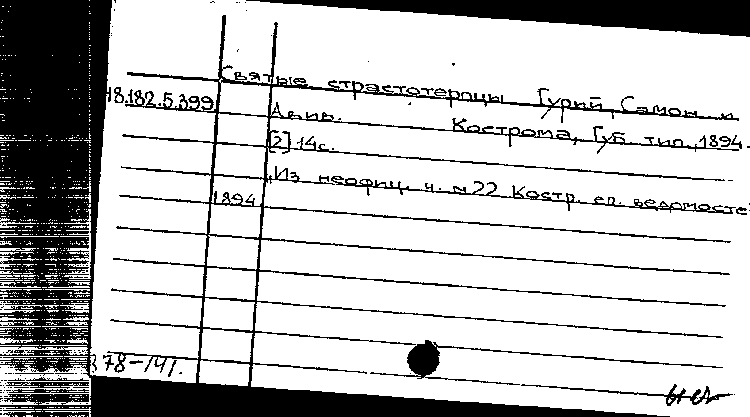 Святые страстотерпцы Гурий, Самон и
18.182.5.399
Авив. Кострома, Губ. тип., 1894.
[2] 14с.
"Из неофиц. ч. №22 Костр. еп. ведомостей
1894
378-141.